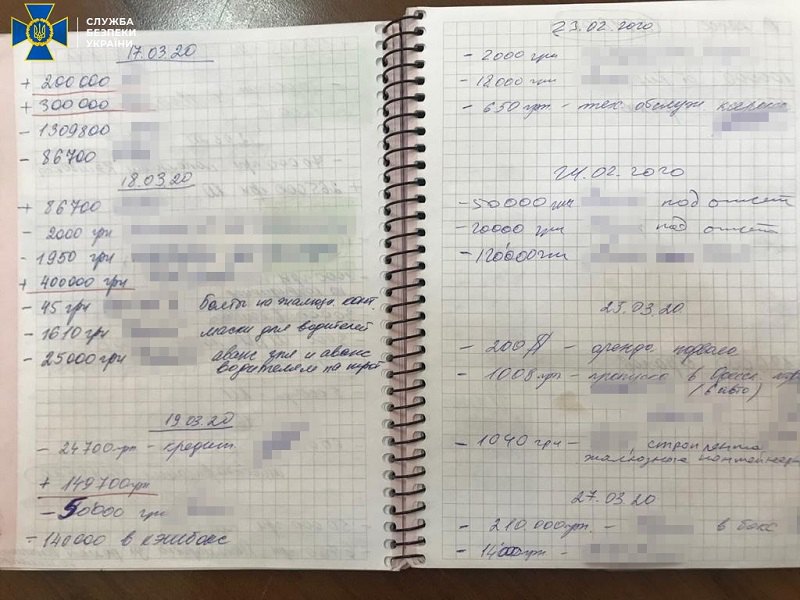 СЛУЖБА
БЕЗПЕКИ
УКРАЇНИ
17.03.20
+ 200 000
+ 300 000
- 1309800
- 86700
18.03.20
+ 86700
- 2000 грн
- 1950 грн
+ 400000 грн
- 45 грн болты на жалюзи конт.
- 1610 грн маски для водителей
- 25000 грн аванс зпл и аванс
водителям на
19.03.20
- 24700 грн - кредит
+ 149700 грн
- 50000 грн
- 140000 в кэшбокс
23.02.2020
- 2000 грн
- 12000 грн
- 650 грн - тех. обслуж ксерокса
24.02.2020
- 50000 грн под отчет
- 20000 грн под отчет
- 120000 грн
25.03.20
- 200 $ - аренда подвала
- 1008 грн - пропуска в Одесск.
- 1040 грн - строп лента
жалюзные контейнера
27.03.20
- 210 000 грн. - в бокс
- 14000 грн -